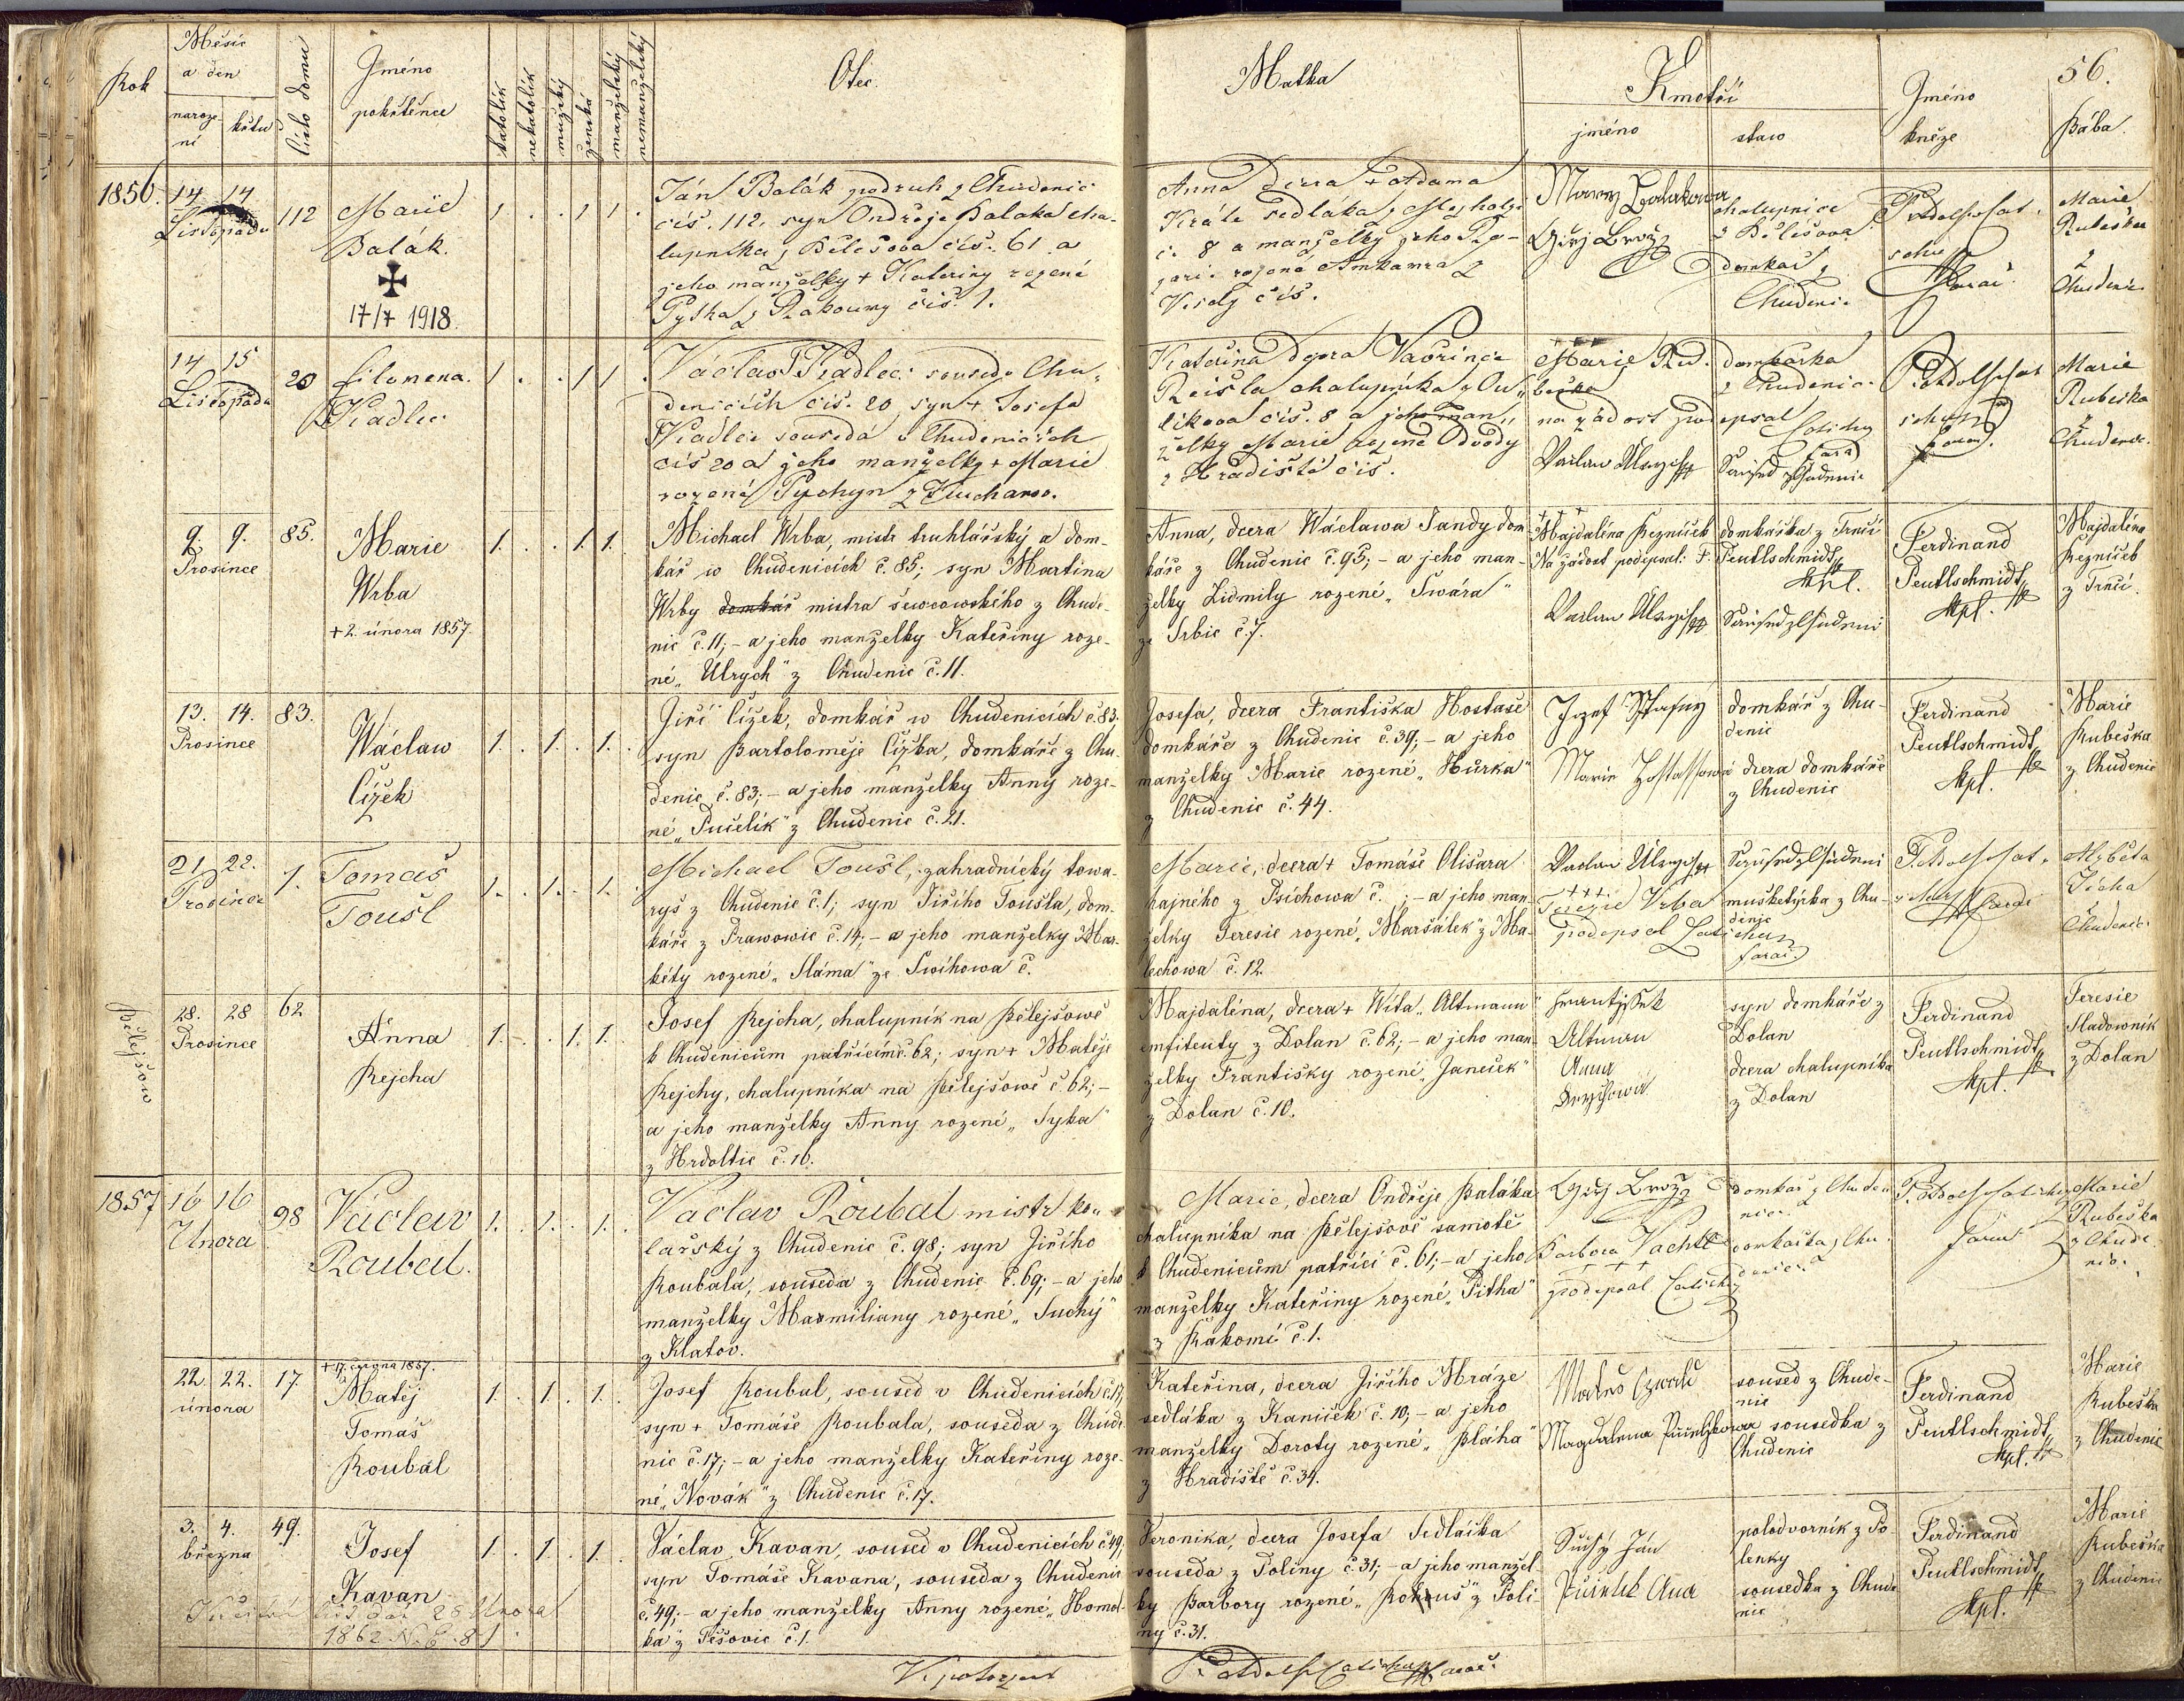 Rok
Měsíc
a den
naroze
ní
křtu
číslo domu
Jméno
pokřtěnce
katolík
nekatolík
mužský
ženská
manželský
nemanželský
Otec.
Matka
Kmotři
jméno
staw
Jméno
kněze
56.
Bába.
1856.
14 14
Listopadu
112
Marie
Balák.
17/7 1918.
1 . . 1 1 .
Ján Balák podruh z Chudenic
čís. 112. syn Ondřeje Balaka cha-
lupníka z Bělešova čís. 61 a
jeho manželky + Kateriny rozené
čís. 1.
Anna Dcera + Adama
Krále sedláka z
č. 8 a manželky jeho Ro-
rozené z
čís.
chalupnice
z Bělešova
domkař z
Chudenic
Marie
Rubeška
z
Chudenic
14 15
Listopadu
20
Filomena.
Kadlec
1 . . 1 1 .
Václav Kadlec soused v Chu-
denicích čís. 20 syn + Josefa
Kadlce souseda v Chudenicích
čís 20 a jeho manželky + Marie
rozené
Kateřina Dcera Vavřince
Reisla chalupníka z Ou-
líkova čís. 8 a jeho man-
želky Marie rozené Odvody
z Hradiště čís.
Marie Ru-
beška
na žádost podepsal
domkařka
z Chudenic
Marie
Rubeška
z
Chudenic.
9. 9.
Prosince
85.
Marie
Wrba
+ 2. února 1857.
1. . . 1. 1.
Michael Wrba, mistr truhlářský a dom-
kář w Chudenicích č. 85; syn Martina
Wrby domkář mistra šewcowského z Chude-
nic č. 11; - a jeho manželky Kateřiny roze-
né „Ulrych" z Chudenic č. 11.
Anna, dcera Wáclawa Jandy dom-
káře z Chudenic č. 95; - a jeho man-
želky Lidmily rozené „Swára"
ze Srbic č. 7.
+++
Majdaléna Řezníček
Na žádost podepsal: F.
domkářka z Trnčí
Peutlschmidt
kpl.
Ferdinand
Peutlschmidt
kpl.
Majdaléna
Řezníček
z Trnčí.
13. 14.
Prosince
83.
Wáclaw
Čížek
1. . 1. . 1. .
Jiří Čížek, domkář w Chudenicích č. 83.
syn Bartoloměje Čížka, domkáře z Chu-
denic č. 83; - a jeho manželky Anny roze-
né „Pučelík" z Chudenic č. 21.
Josefa, dcera Františka Hostaše
domkáře z Chudenic č. 39; - a jeho
manželky Marie rozené „Hůrka"
z Chudenic č. 44.
Jozef Sstastny
domkář z Chu-
denic
dcera domkáře
z Chudenic
Ferdinand
Peutlschmidt
kpl.
Marie
Rubeška
z Chudenic
21 22.
Prosince
1.
Tomáš
Toušl
1. . 1. . 1. .
Michael Toušl, zahradnický towa-
ryš z Chudenic č. 1; syn Jiřího Toušla, dom-
káře z Prawowic č. 14; - a jeho manželky Mar-
kéty rozené „Sláma" ze Swihowa č.
Marie, dcera + Tomáše Olišara
hajného z Psichowa č. ; - a jeho man-
želky Teresie rozené „Maršálek" z Ma-
lechowa č. 12.
+++
Terezie Vrba
podepsal
mušketýrka z Chu-
denic
farář
Alzběta
Jícha
z
Chudenic.
Bělejšow
28. 28
Prosince
62
Anna
Rejcha
1. . . 1. 1.
Josef Rejcha, chalupník na Bělejšowě
k Chudenicům patřícím č. 62; syn + Matěje
Rejchy, chalupníka na Bělejšowě č. 62; -
a jeho manželky Anny rozené „Syka"
z Hrdoltic č. 16.
Majdaléna, dcera + Wíta „Altmann"
emfiteuty z Dolan č. 62; - a jeho man-
želky Františky rozené „Janeček"
z Dolan č. 10.
syn domkáře z
Dolan
dcera chalupníka
z Dolan
Ferdinand
Peutlschmidt
kpl.
Teresie
Sladowník
z Dolan
1857
16 16
Února
98
Václav
Roubal.
1. . 1. . 1. .
Václav Roubal mistr ko-
lařský z Chudenic č. 98; syn Jiřího
Roubala, souseda z Chudenic č. 69; - a jeho
manželky Maxmiliany rozené „Suchý"
z Klatov.
Marie, dcera Ondřeje Baláka
chalupníka na Bělejšově samotě
k Chudenicům patřící č. 61; - a jeho
manželky Kateřiny rozené „Pitha"
z Rakomí č. 1.
Barbora Vachtl
+ + +
podepsal
domkař z Chude-
nic.
domkařka z Chu-
denic.
Marie
Rubeška
z Chude-
nic.
22. 22.
února
17.
+ 17. srpna 1857.
Matěj
Tomáš
Roubal
1. . 1. . 1. .
Josef Roubal, soused v Chudenicích č. 17,
syn + Tomáše Roubala, souseda z Chude-
nic č. 17; - a jeho manželky Kateřiny roze-
né „Novák" z Chudenic č. 17.
Kateřina, dcera Jiřího Mráze
sedláka z Kaniček č. 10; - a jeho
manželky Doroty rozené „Bláha"
z Hradiště č. 34.
soused z Chude-
nic
sousedka z
Chudenic
Ferdinand
Peutlschmidt
kpl.
Marie
Rubeška
z Chudenic
3. 4.
března
49.
Josef
Kavan
28 Února
1862
1. . 1. . 1. .
Václav Kavan, soused v Chudenicích č. 49;
syn Tomáše Kavana, souseda z Chudenic
č. 49; - a jeho manželky Anny rozené „Homol-
ka" z Těšovic č. 1.
Veronika, dcera Josefa Sedláčka
souseda z Poliny č. 31; - a jeho manžel-
ky Barbory rozené „Rokous" z Poli-
ny č. 31.
Suchý Ján
polodvorník z Po-
lenky
sousedka z Chude-
nic
Ferdinand
Peutlschmidt
kpl.
Marie
Rubeška
z Chudenic